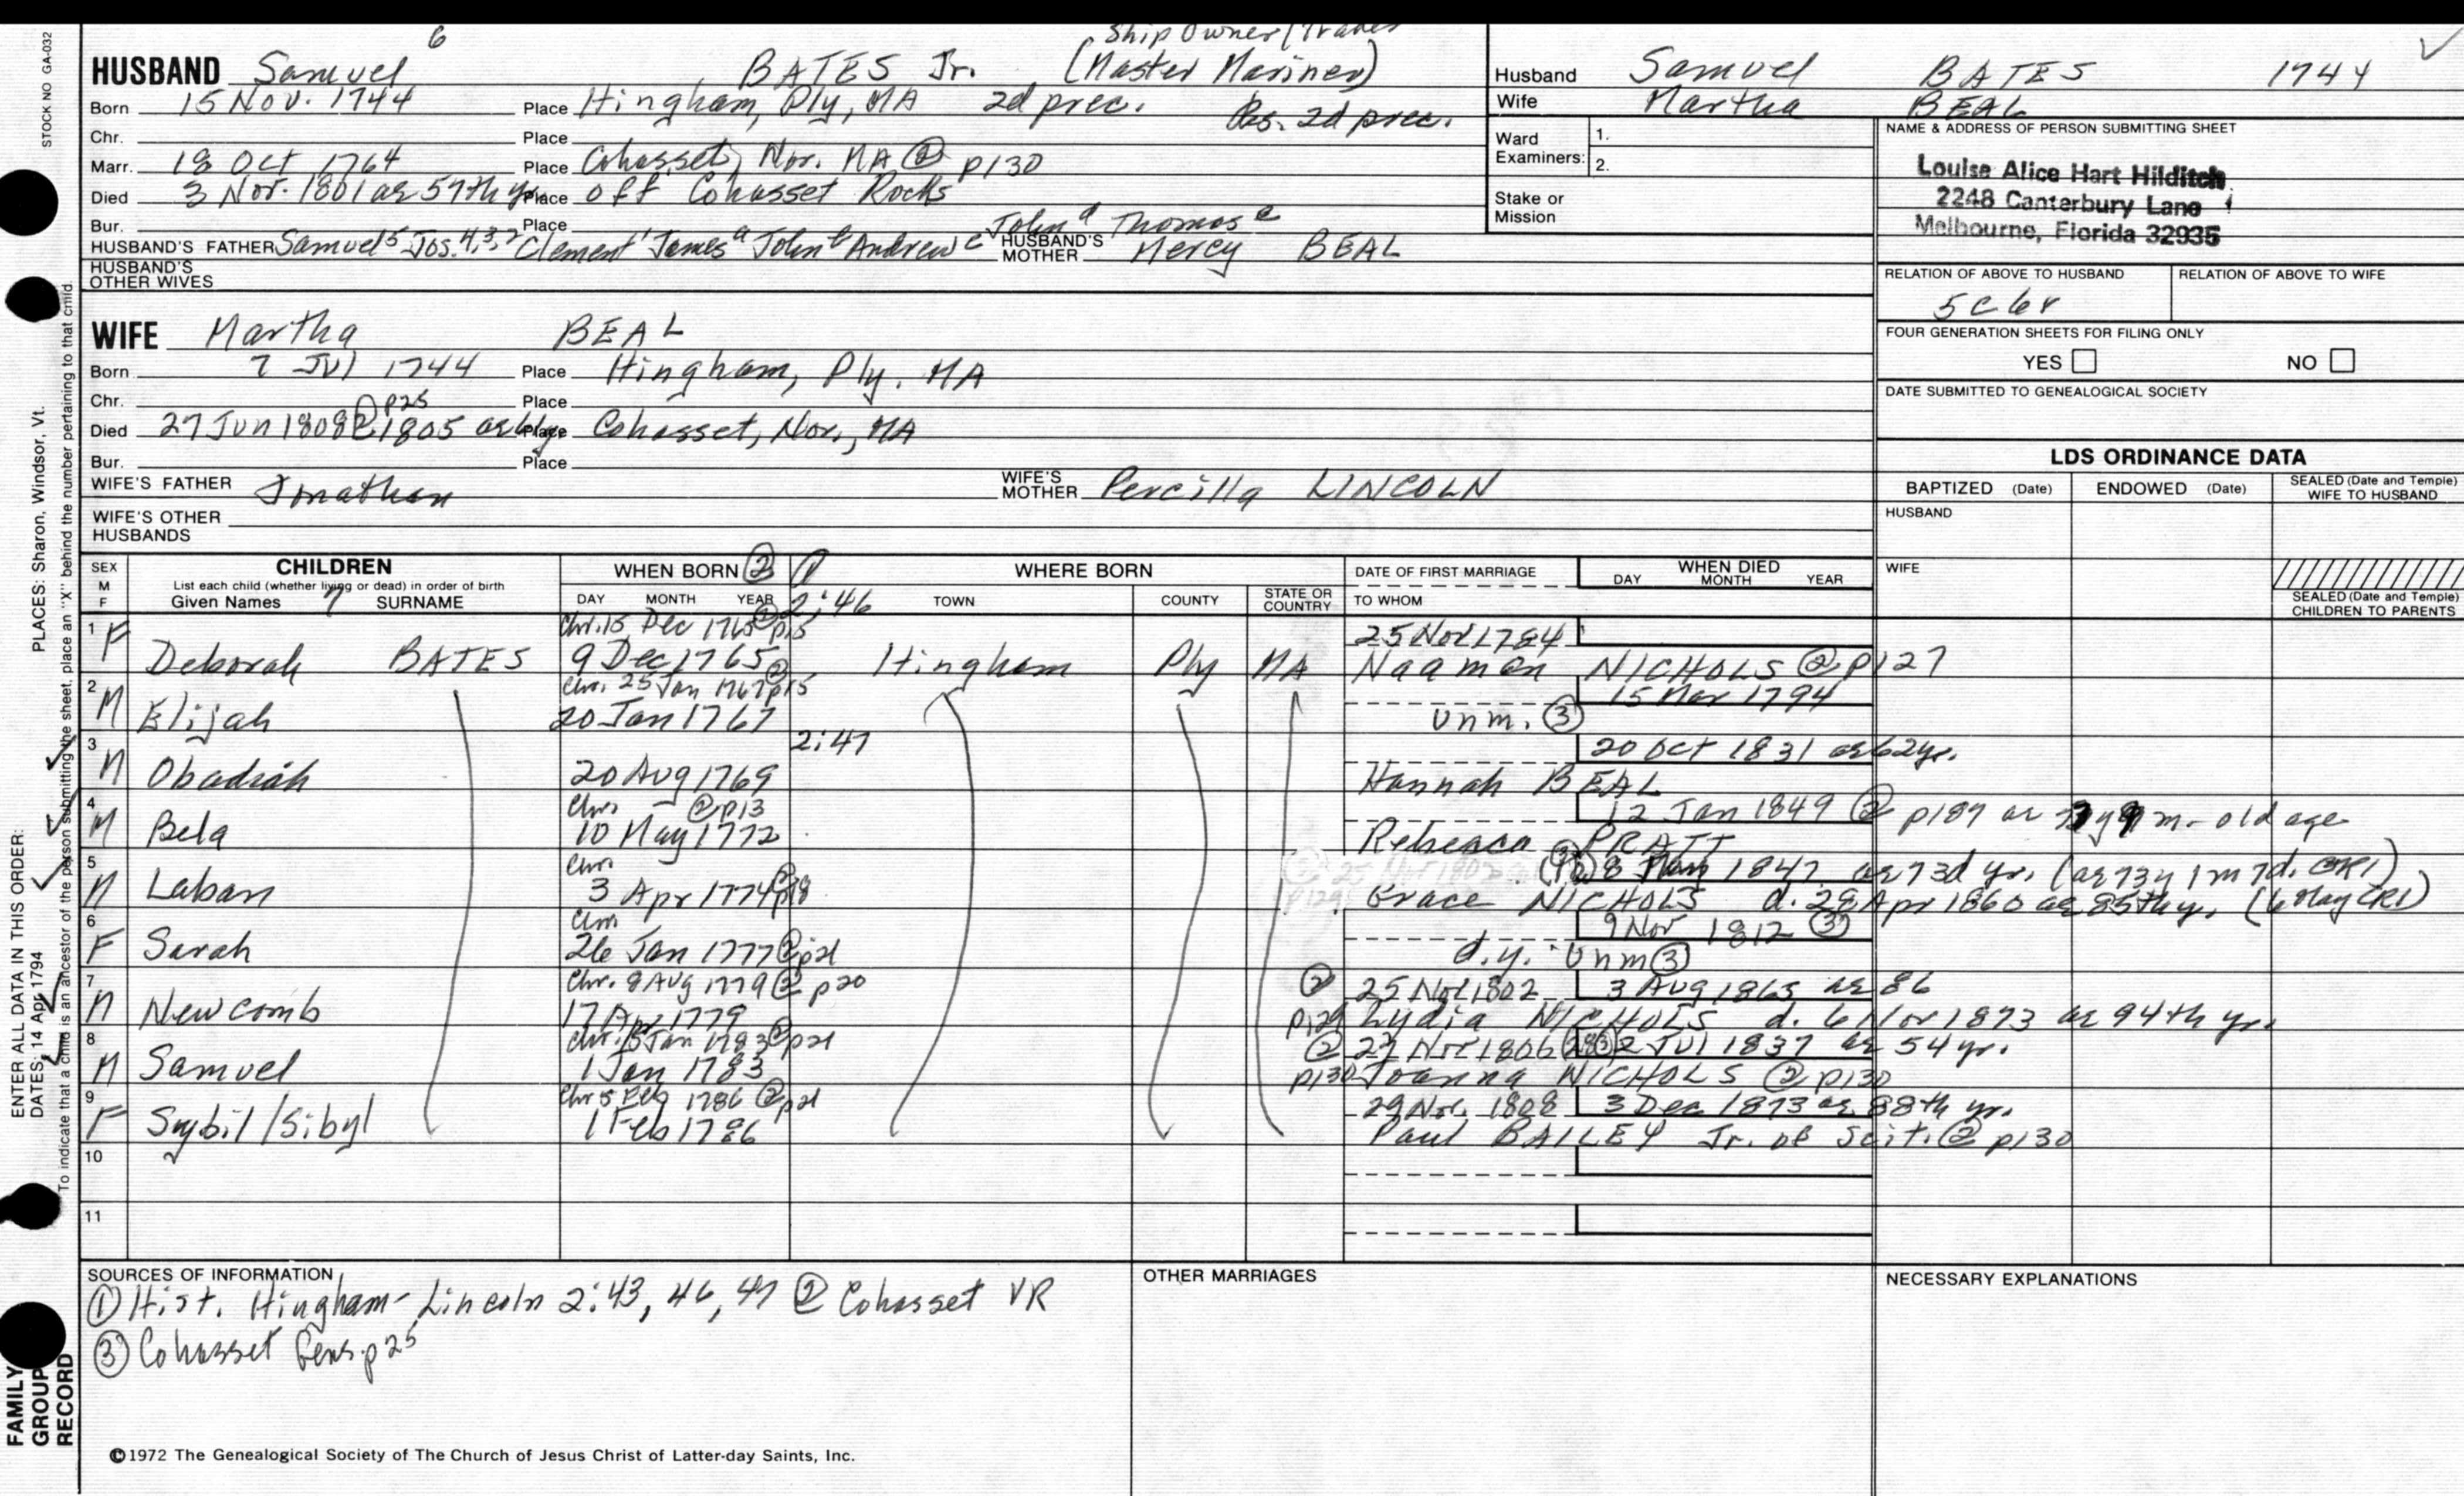 Ship Owner/Trader
HUSBAND Samuel 6 BATES Jr. (Master Mariner)
Born 15 Nov. 1744 Place Hingham, Ply, MA 2d prec. Res. 2d prec.
Chr. Place
Marr. 18 Oct 1764 Place Cohasset, Nor. MA ② p130
Died 3 Nov. 1801 ae 57th yr Place off Cohasset Rocks
Bur. Place
HUSBAND'S FATHER Samuel 5 Jos. 4,3,2 Clement 1 James a John b Andrew c John d Thomas e HUSBAND'S MOTHER Mercy BEAL
HUSBAND'S OTHER WIVES
Husband Samuel BATES 1744
Wife Martha BEAL
Ward Examiners: 1.
2.
Stake or Mission
NAME & ADDRESS OF PERSON SUBMITTING SHEET
Louise Alice Hart Hilditch
2248 Canterbury Lane
Melbourne, Florida 32935
RELATION OF ABOVE TO HUSBAND RELATION OF ABOVE TO WIFE
5c6r
FOUR GENERATION SHEETS FOR FILING ONLY
YES NO
DATE SUBMITTED TO GENEALOGICAL SOCIETY
WIFE Martha BEAL
Born 7 Jul 1744 Place Hingham, Ply. MA
Chr. Place
② p25
Died 27 Jun 1808 1805 Place Cohasset, Nor., MA
Bur. Place
WIFE'S FATHER Jonathan WIFE'S MOTHER Percilla LINCOLN
WIFE'S OTHER HUSBANDS
LDS ORDINANCE DATA
BAPTIZED (Date) ENDOWED (Date) SEALED (Date and Temple) WIFE TO HUSBAND
HUSBAND
WIFE
SEALED (Date and Temple) CHILDREN TO PARENTS
SEX M F CHILDREN List each child (whether living or dead) in order of birth Given Names 7 SURNAME
WHEN BORN ② ① DAY MONTH YEAR
WHERE BORN TOWN COUNTY STATE OR COUNTRY
DATE OF FIRST MARRIAGE TO WHOM
WHEN DIED DAY MONTH YEAR
2:46
1 Chr. 15 Dec 1765 ② p15 25 Nov 1784
F Deborah BATES 9 Dec 1765 Hingham Ply MA Naaman NICHOLS ② p127
2 Chr. 25 Jan 1767 ② p15 15 Mar 1794
M Elijah 20 Jan 1767 Unm. ③
3 2:47 20 Oct 1831 ae 62yr.
M Obadiah 20 Aug 1769 Hannah BEAL
4 Chr. ② p13 12 Jan 1849 ② p187 ae m - old age
M Bela 10 May 1772 Rebecca PRATT
5 Chr 8 1847 ae 73d yr. (ae 73y 1m 7d. GR1)
M Laban 3 Apr 1774 ② p18 Grace NICHOLS d. 28 Apr 1860 ae 85th y. (6 May CR1)
6 Chr 9 Nov 1812 ③
F Sarah 26 Jan 1777 ② p21 d.y. Unm ③
7 Chr. 8 Aug 1779 ② p20 ② 25 Nov 1802 3 Aug 1865 ae 86
M Newcomb 17 Apr 1779 p129 Lydia NICHOLS d. 6 Nov 1873 ae 94th yr.
8 Chr. 5 Jan 1783 ② p21 ② 27 Nov 1806 2&③ 2 Jul 1837 ae 54 yr.
M Samuel 1 Jan 1783 p130 Joanna NICHOLS ② p130
9 Chr 5 Feb 1786 ② p21 29 Nov. 1808 3 Dec 1873 ae 88th yr.
F Sybil/Sibyl 1 Feb 1786 Paul BAILEY Jr. of Scit. ② p130
10
11
SOURCES OF INFORMATION
① Hist. Hingham - Lincoln 2:43, 46, 47 ② Cohasset VR
③ Cohasset Gens. p25
OTHER MARRIAGES
NECESSARY EXPLANATIONS
©1972 The Genealogical Society of The Church of Jesus Christ of Latter-day Saints, Inc.
STOCK NO GA-032
PLACES: Sharon, Windsor, Vt.
ENTER ALL DATA IN THIS ORDER:
DATES: 14 Apr 1794
To indicate that a child is an ancestor of the person submitting the sheet, place an "X" behind the number pertaining to that child.
FAMILY GROUP RECORD